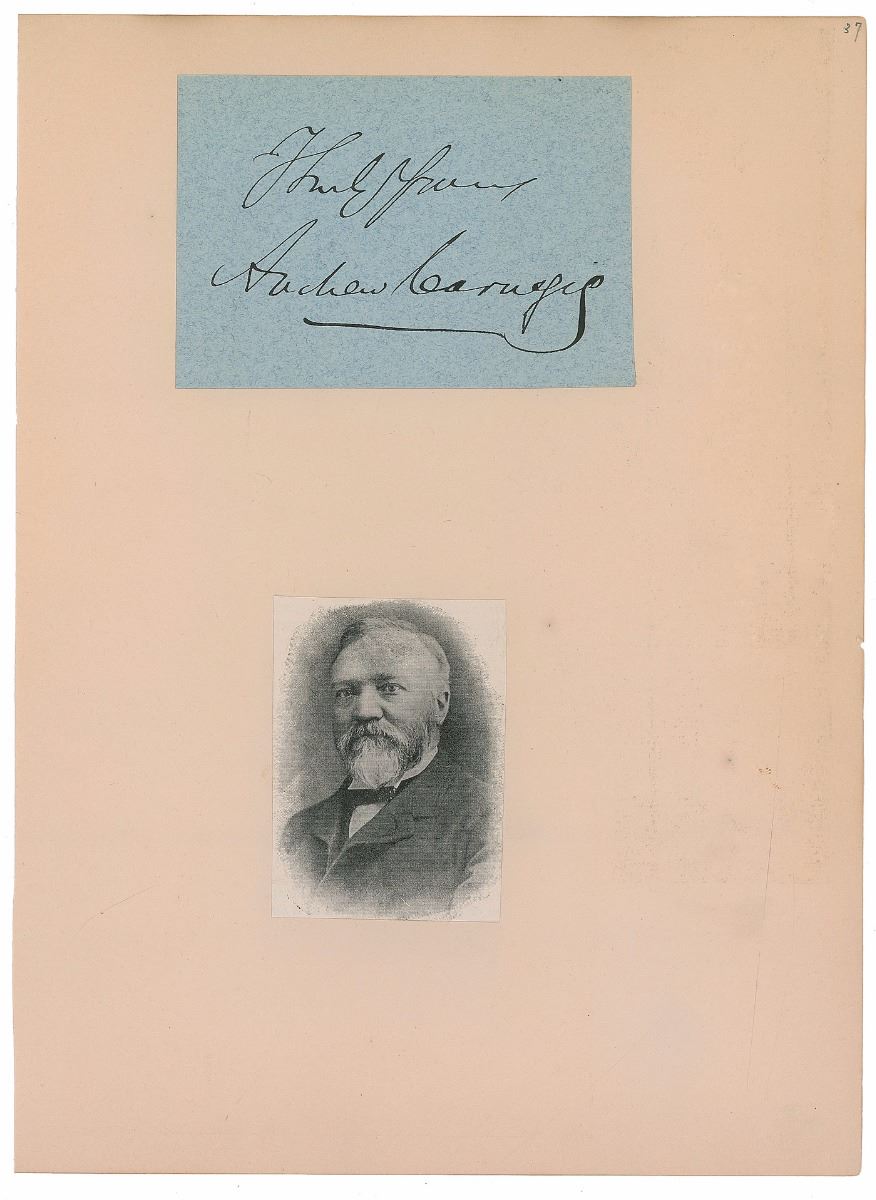 37
Truly Yours
Andrew Carnegie